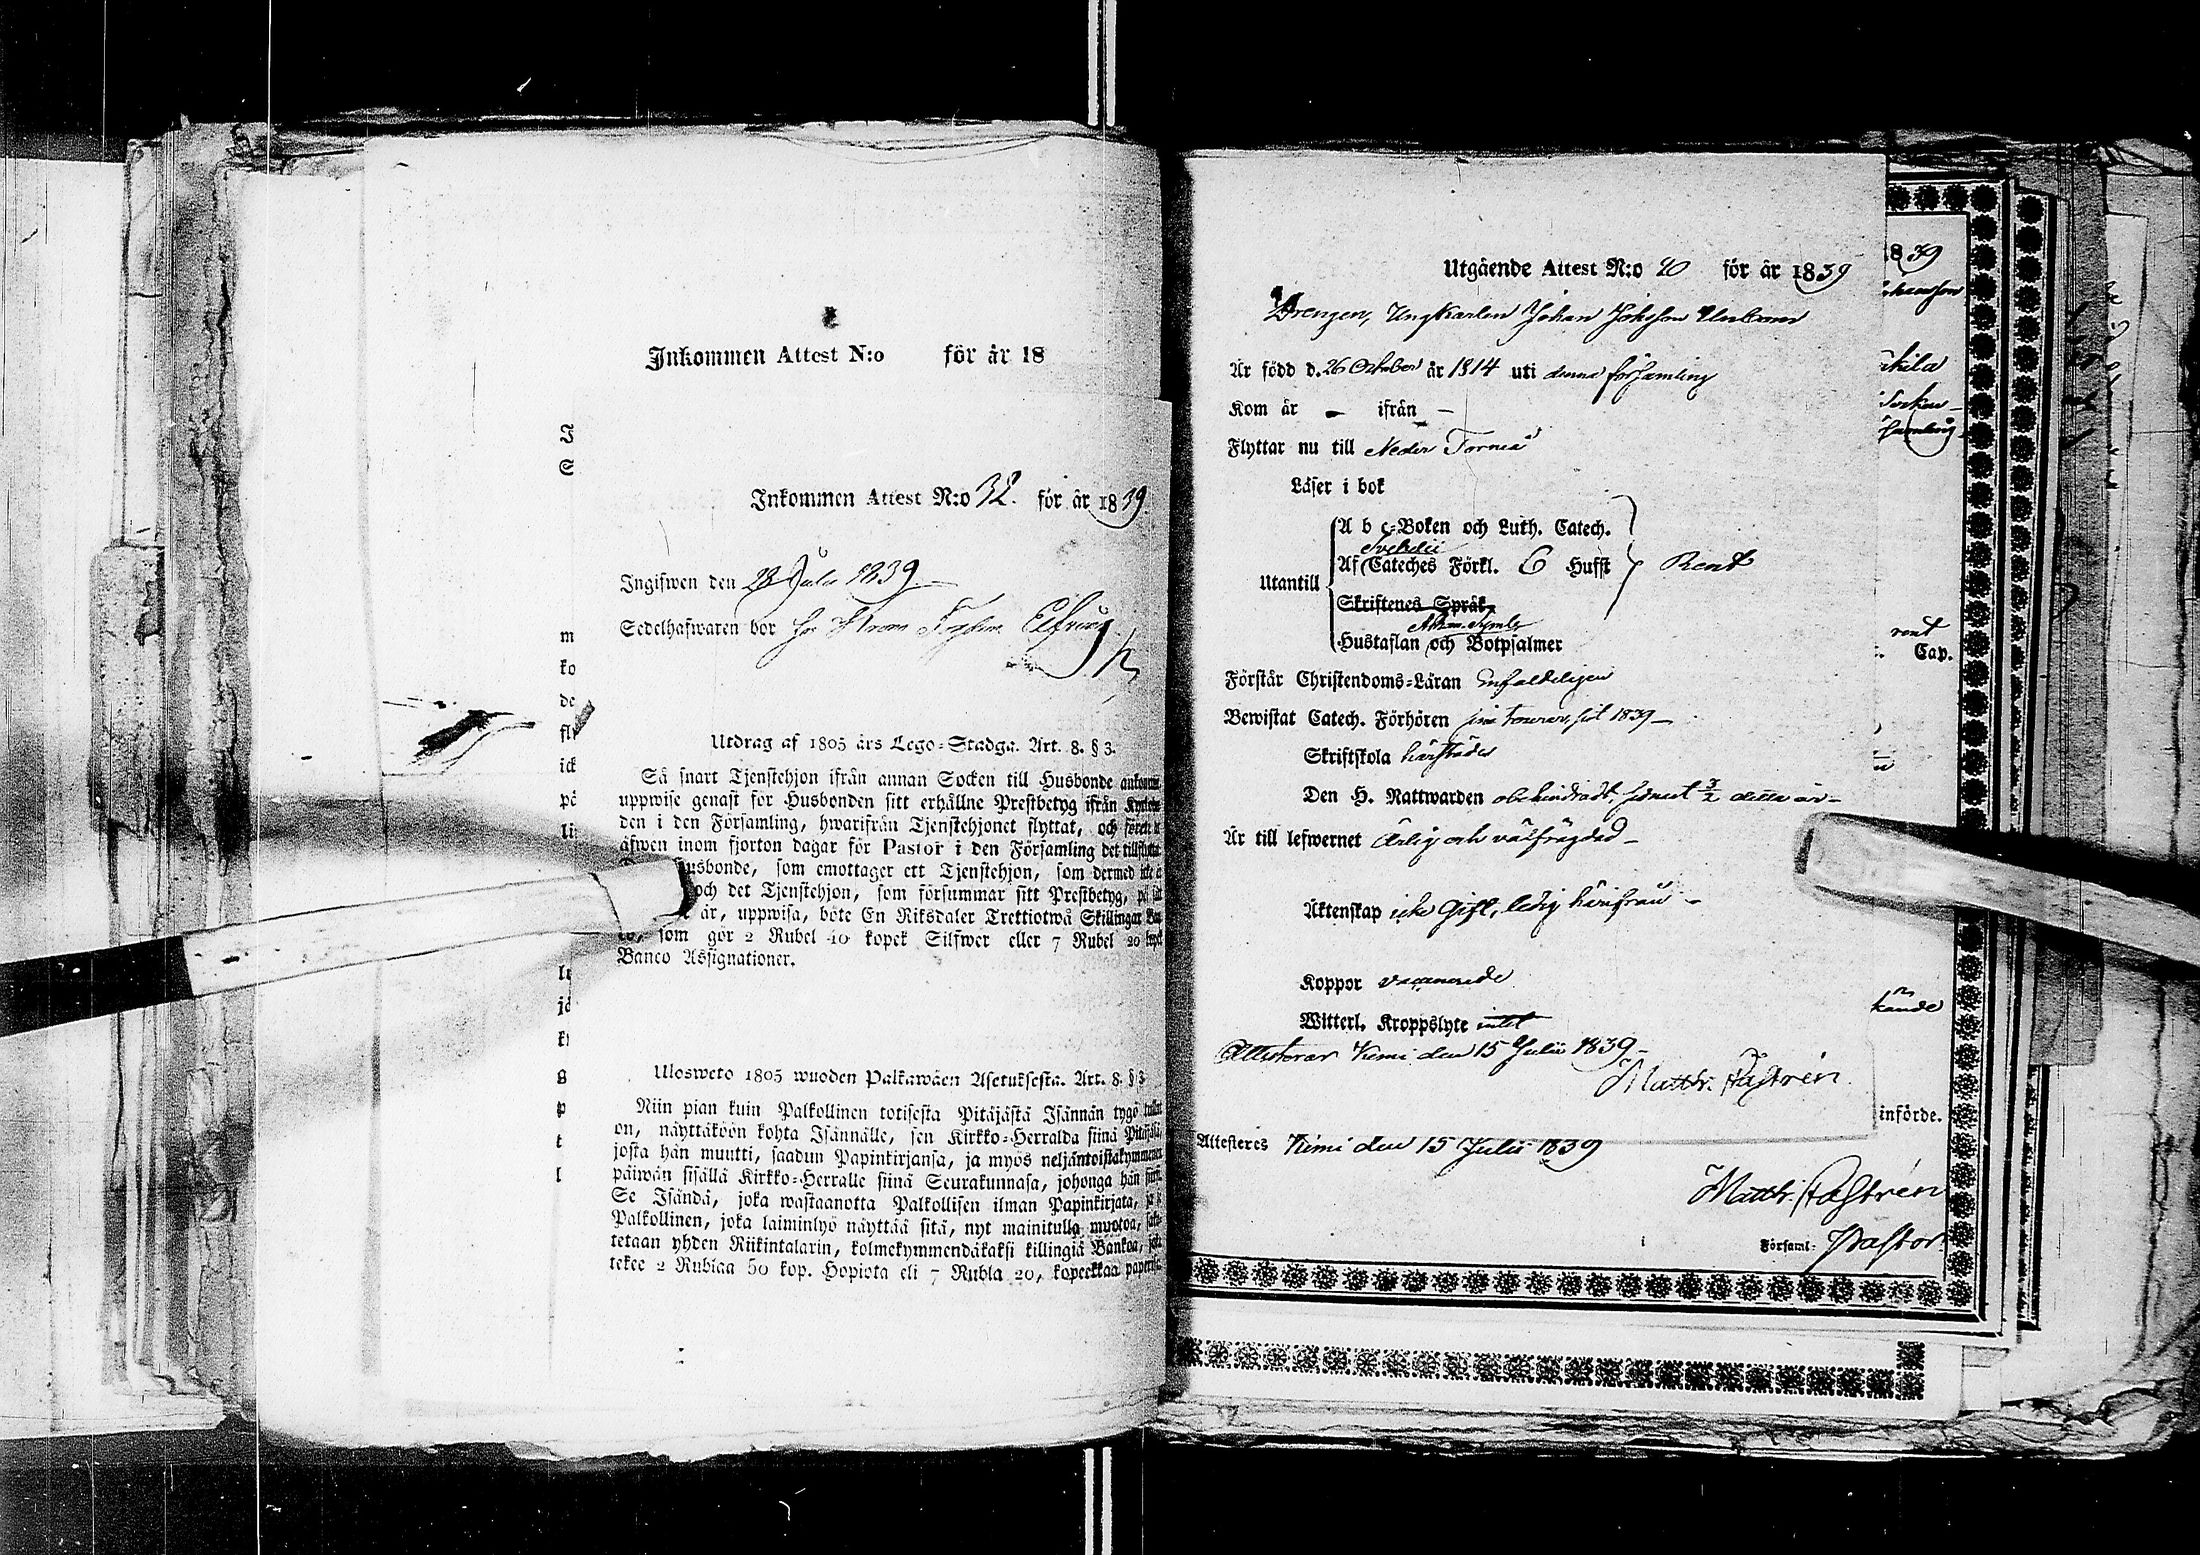 Inkommen Attest N:o för år 18
I
S
Inkommen Attest N:o 32. för år 1839
Ingifwen den 28 Julii 1839
Sedelhafwaren bor hr
m
ko
de
fly
ick
på
li
Utdrag af 1805 års Lego-Stadga. Art. 8. § 3.
Så snart Tjenstehjon ifrån annan Socken till Husbonde
uppwise genast för Husbonden sitt erhållne Prestbetyg ifrån
den i den Församling, hwarifrån Tjenstehjonet flyttat, och
äfwen inom fjorton dagar för Pastor i den Församling det
usbonde, som emottager ett Tjenstehjon, som dermed icke
och det Tjenstehjon, som försummar sitt Prestbetyg, på
är, uppwisa, böte En Riksdaler Trettiotwå Skillingar
som gör 2 Rubel 40 kopek Silfwer eller 7 Rubel 20
Banco Assignationer.
jo
k
g
p
t
l
Ulosweto 1805 wuoden Palkawäen Asetuksesta. Art. 8. § 3
Niin pian kuin Palkollinen totisesta Pitäjästä Isännän tygö
on, näyttäköön kohta Isännälle, sen Kirkko-Herralda siinä
josta hän muutti, saadun Papinkirjansa, ja myös neljäntoistakymmenen
päiwän sisällä Kirkko-Herralle siinä Seurakunnasa, johonga hän
Se Isändä, joka wastaanotta Palkollisen ilman Papinkirjata,
Palkollinen, joka laiminlyö näyttää sitä, nyt mainitulla muotoa,
tetaan yhden Riikintalarin, kolmekymmendäkaksi killingiä Bankoa,
tekee 2 Rublaa 50 kop. Hopiota eli 7 Rubla 20, kopeekkaa
Utgående Attest N:o 20 för år 1839
Drengen, Ungkarlen Johan Johsson
Är född d. 26 October år 1814 uti denna församling
Kom år – ifrån –
Flyttar nu till Neder Torneå
Läser i bok
A b c-Boken och Luth. Catech.
Svebelii
Utantill Af Cateches Förkl. 6 Hufst Rent
Skriftenes Språk
Athan. Symb.
Hustaflan och Botpsalmer
Förstår Christendoms-Läran Enfaldeligen
Bewistat Catech. Förhören 1839 –
Skriftskola härstädes
Den H. Nattwarden obehindradt, senast detta år –
Är till lefwernet Ärlig och välfrägdad –
Äktenskap icke Gift, ledig härifrån –
Koppor vaccinerade
Witterl. Kroppslyte intet
Attesterar Kemi den 15 Julii 1839 –
Matth. Castrén
Attesteres Kemi den 15 Julii 1839
Matth. Castrén
Församl: Pastor.
1839
rent
Cap.
kände
införde.